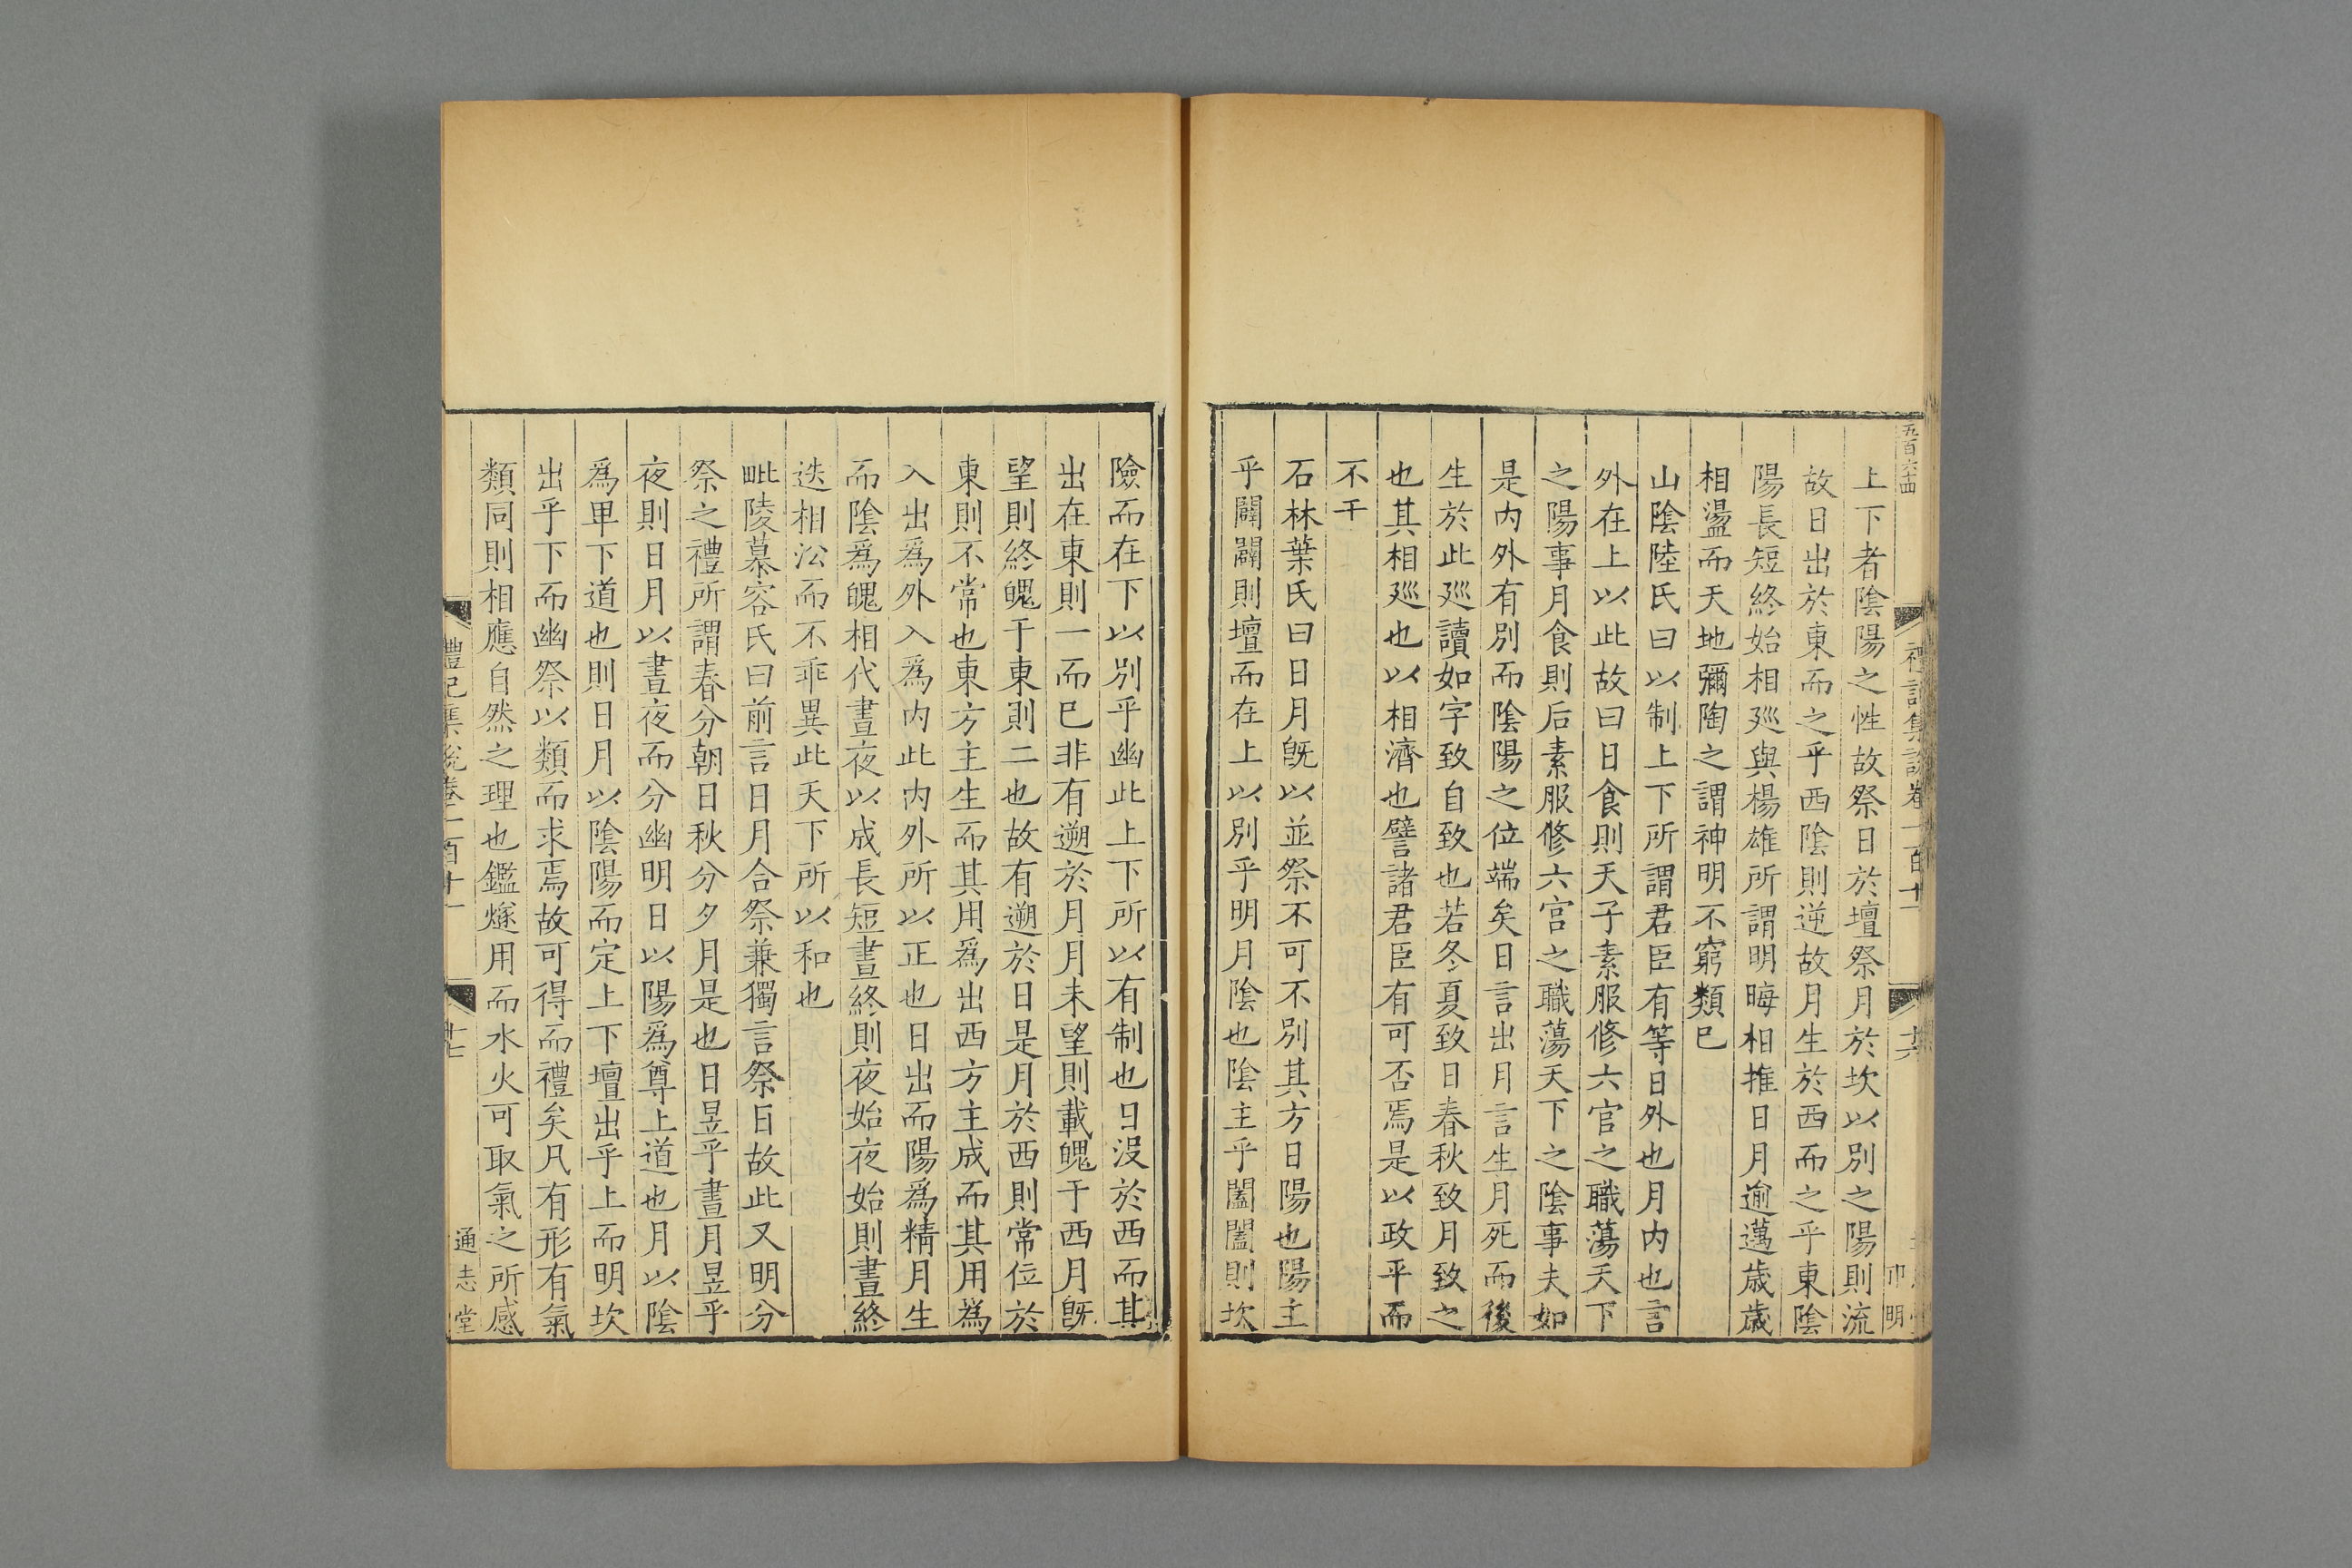 五百六十四
禮記集說卷一百十一
十六
明
上下者陰陽之性故祭日於壇祭月於坎以別之陽則流
故日出於東而之乎西陰則逆故月生於西而之乎東陰
陽長短終始相廵與楊雄所謂明晦相推日月逾邁歲歲
相盪而天地彌陶之謂神明不窮類巳
山陰陸氏曰以制上下所謂君臣有等日外也月内也言
外在上以此故曰日食則天子素服修六官之職蕩天下
之陽事月食則后素服修六宫之職蕩天下之陰事夫如
是内外有別而陰陽之位端矣日言出月言生月死而後
生於此廵讀如字致自致也若冬夏致日春秋致月致之
也其相廵也以相濟也譬諸君臣有可否焉是以政平而
不干
石林葉氏曰日月旣以並祭不可不別其方日陽也陽主
乎闢闢則壇而在上以別乎明月陰也陰主乎闔闔則坎
險而在下以別乎幽此上下所以有制也日没於西而其
出在東則一而巳非有遡於月月未望則載魄于西月旣
望則終魄于東則二也故有遡於日是月於西則常位於
東則不常也東方主生而其用爲出西方主成而其用爲
入出爲外入爲内此内外所以正也日出而陽爲精月生
而陰爲魄相代晝夜以成長短晝終則夜始夜始則晝終
迭相㳂而不乖異此天下所以和也
毗陵慕容氏曰前言日月合祭兼獨言祭日故此又明分
祭之禮所謂春分朝日秋分夕月是也日昱乎晝月昱乎
夜則日月以晝夜而分幽明日以陽爲尊上道也月以陰
爲卑下道也則日月以陰陽而定上下壇出乎上而明坎
出乎下而幽祭以類而求焉故可得而禮矣凡有形有氣
類同則相應自然之理也鑑燧用而水火可取氣之所感
禮記集說卷一百十一
十七
通志堂